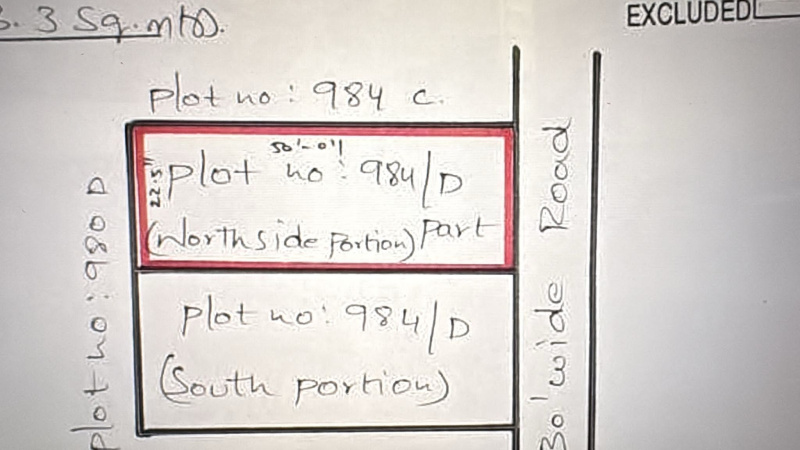 3 Sq.mts.
EXCLUDED
Plot no: 984 C.
50'-0"
22.5"
Plot no: 984/D
(Northside Portion) Part
Plot no: 984/D
(South portion)
Plot no: 980 D
30' wide Road